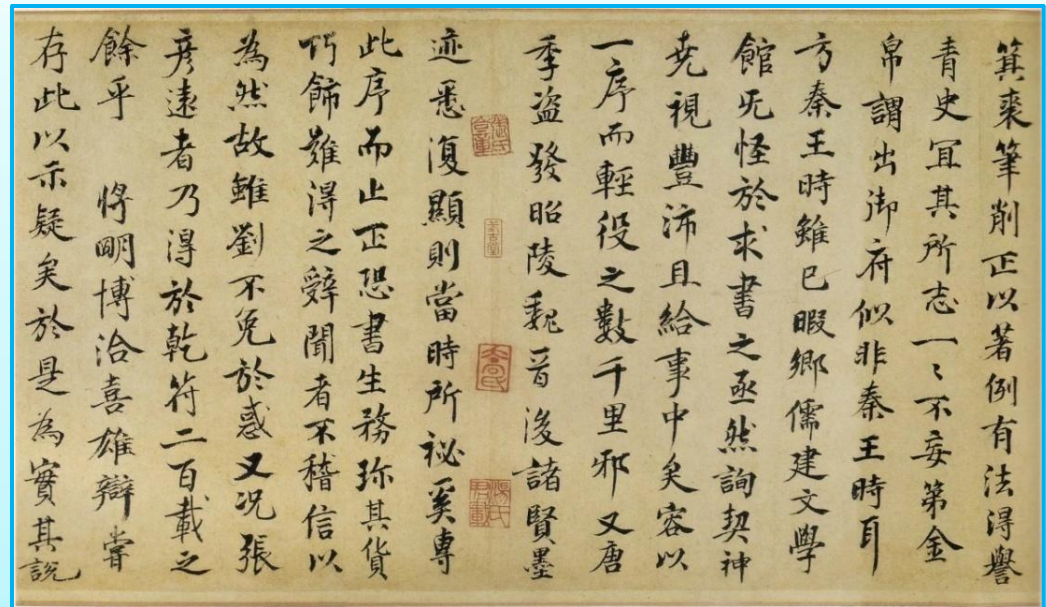 箕裘筆削正以著例有法得譽
青史冝其所志一〻不妄第金
帛謂出御府似非秦王時耳
方秦王時雖已暇鄉儒建文學
館旡怪於求書之亟然詢契神
尭視豐沛且給事中矣容以
一序而輕役之數千里邪又唐
季盗發昭陵魏晉後諸賢墨
迹悉復顯則當時所祕奚專
此序而止正恐書生務珎其貨
巧飾難得之辤聞者不稽信以
為然故雖劉不免於惑又况張
彦遠者乃得於乾符二百載之
餘乎 将明博洽喜雄辯嘗
存此以示疑矣於是為實其說